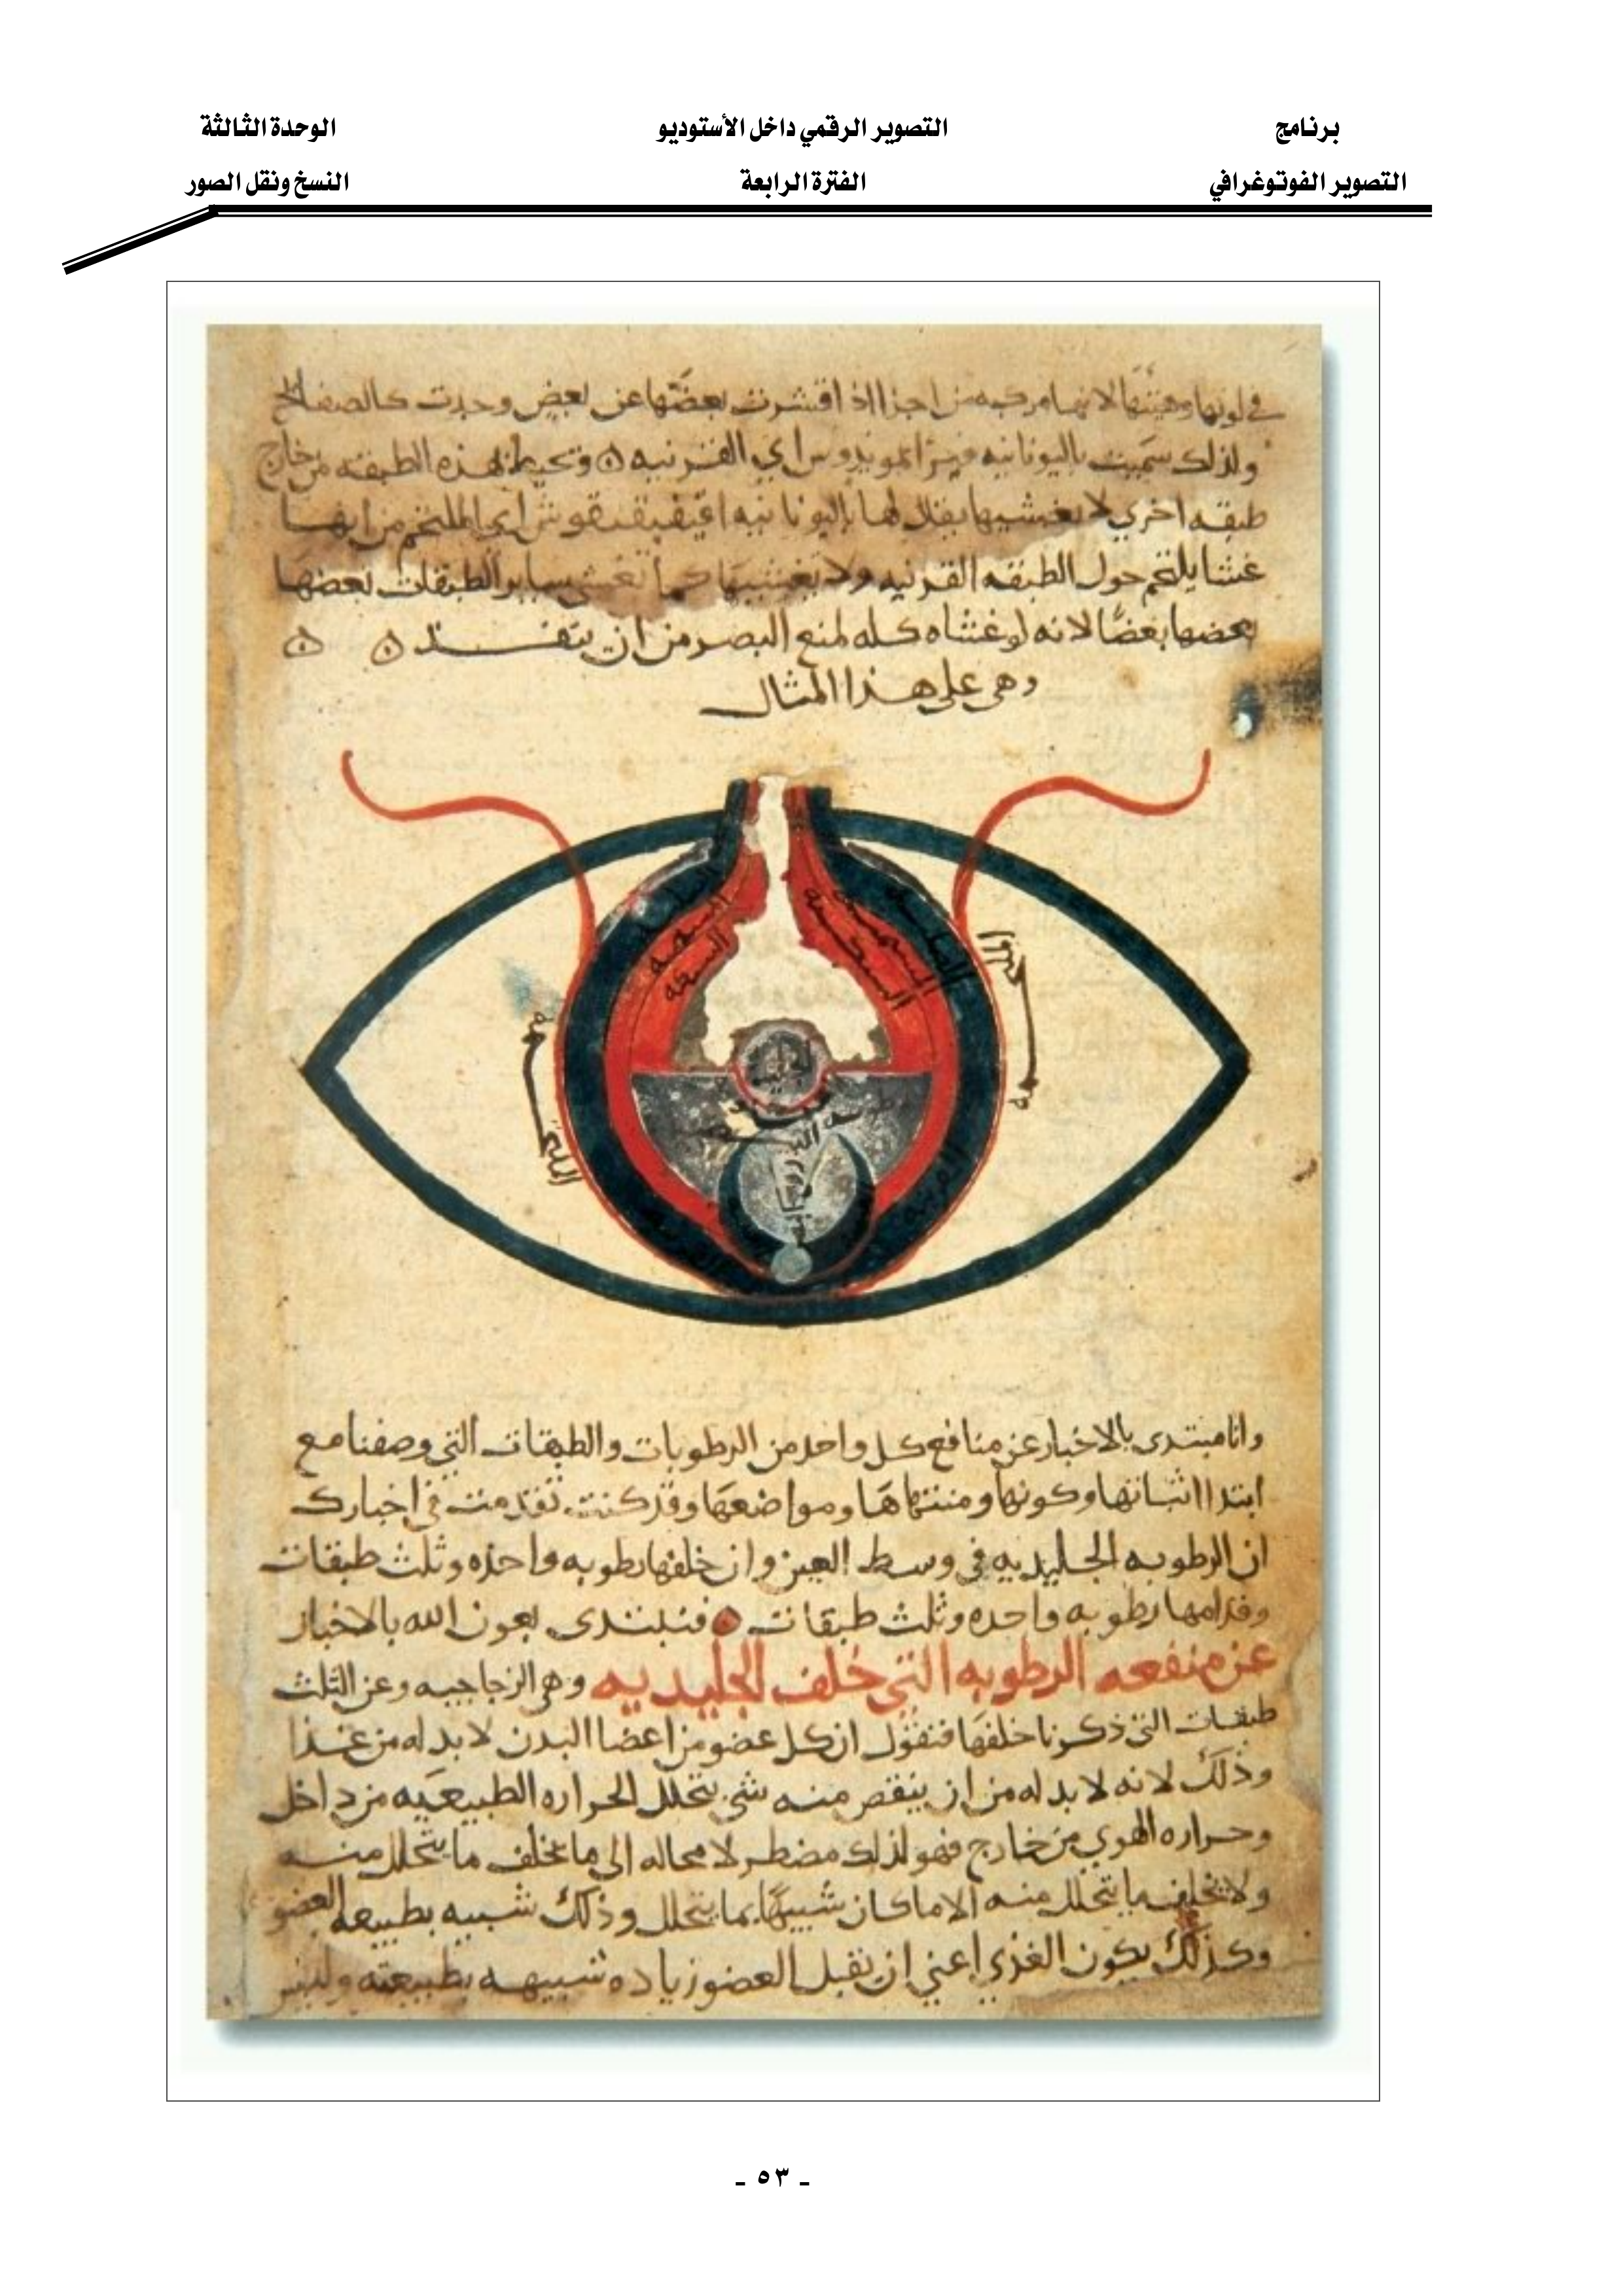 برنامج
التصوير الرقمي داخل الأستوديو
الوحدة الثالثة
التصوير الفوتوغرافي
الفترة الرابعة
النسخ ونقل الصور
في لونها وهيئتها لانها مركبه من اجزا اذا قشرت بعضها عن بعض وجدت كالصفايح
ولذلك سميت باليونانيه اي القرنيه وتحيط بهذه الطبقه من خارج
طبقه اخري لا تغشيها يقال لها باليونانيه اي الملتحم من انها
غشا يلتحم حول الطبقه القرنيه ولا يغشيها كما تغشي ساير الطبقات بعضها
بعضها بعضا لانه لو غشاه كله لمنع البصر من ان ينفذ
وهي على هذا المثال
القرنيه
وانا مبتدى بالاخبار عن منافع كل واحد من الرطوبات والطبقات التي وصفنا مع
ابتدا اثباتها وكونها ومنتهاها ومواضعها وقد كنت تقدمت في اخبارك
ان الرطوبه الجليديه في وسط العين وان خلفها رطوبه واحده وثلث طبقات
وقدامها رطوبه واحده وثلث طبقات فنبتدى بعون الله بالاخبار
عن منفعه الرطوبه التي خلف الجليديه وهي الزجاجيه وعن الثلث
طبقات التي ذكرنا خلفها فنقول ان كل عضو من اعضا البدن لا بد له من غذا
وذلك لانه لا بد له من ان ينقص منه شي بتحلل الحراره الطبيعيه من داخل
وحراره الهوي من خارج فهو لذلك مضطر لا محاله الى ما يخلف ما يتحلل منه
ولا يخلف ما يتحلل منه الا ما كان شبيها بما يتحلل وذلك شبيه بطبيعه العضو
وكذلك يكون الغذي اعني ان تقبل العضو زياده شبيهه بطبيعته وليس
- ٥٣ -